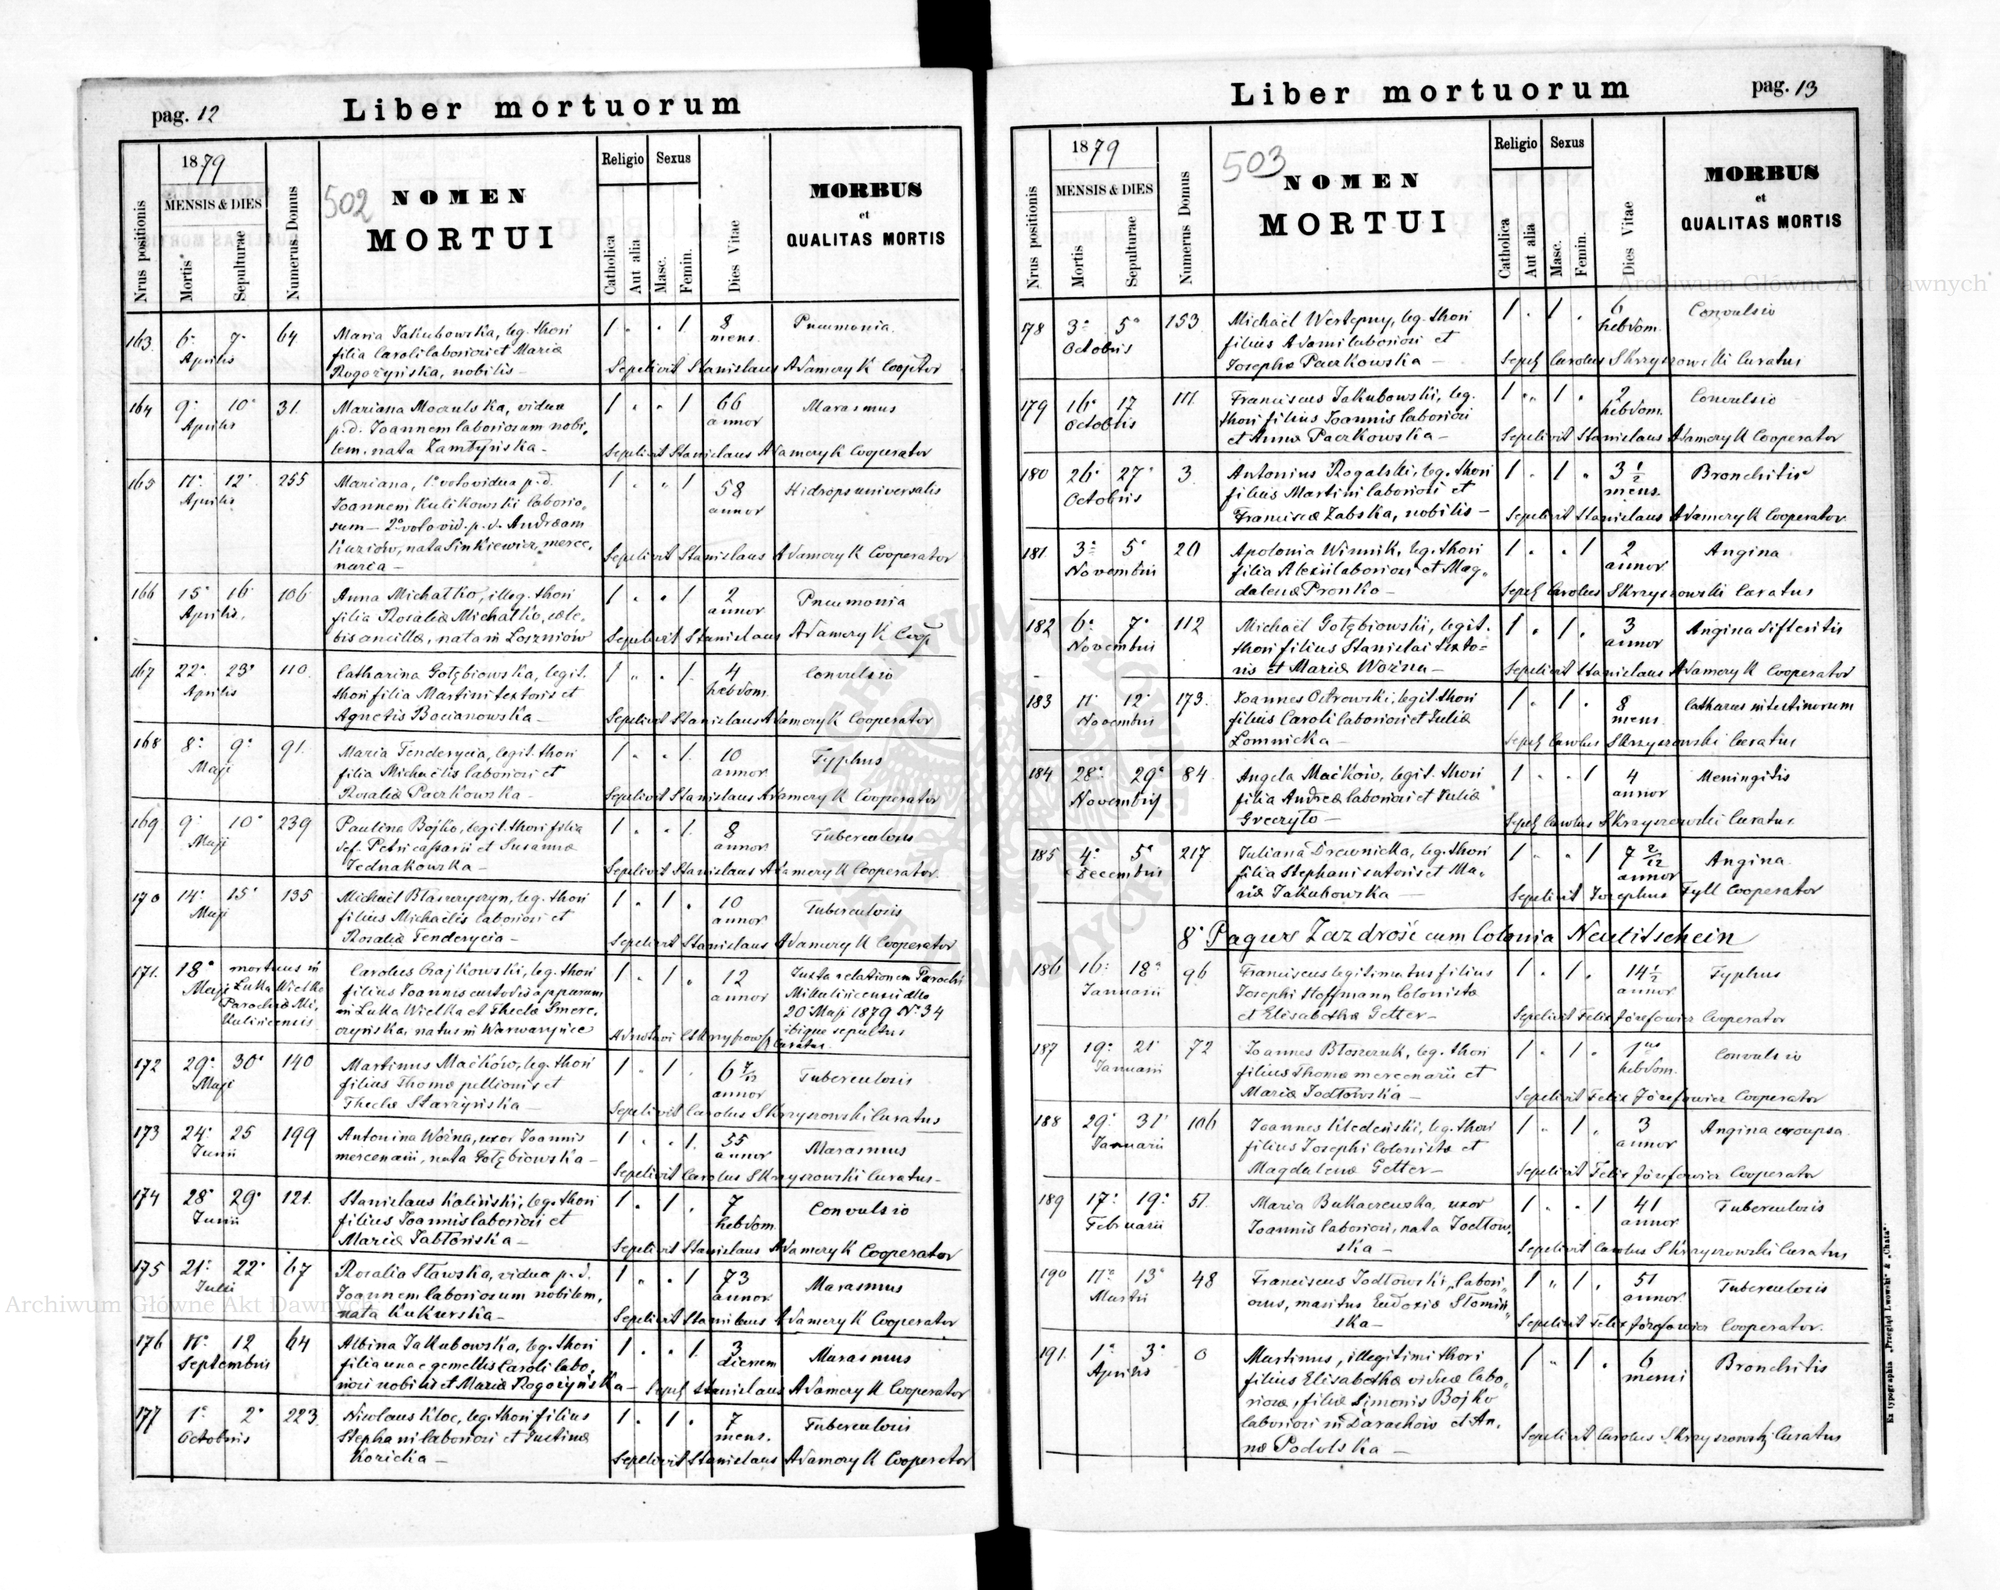 pag. 12
Liber mortuorum
1879
Religio Sexus
Nrus positionis
MENSIS & DIES
Mortis
Sepulturae
Numerus Domus
502
NOMEN
MORTUI
Catholica
Aut alia
Masc.
Femin.
Dies Vitae
MORBUS
et
QUALITAS MORTIS
163. 6. 7. 64 Maria Jakubowska, leg. thori 1 . . 1. 8 Pneumonia
Aprilis filia Caroli laboriosi et Mariæ mens.
Rogożyńska, nobilis – Sepelivit Stanislaus Adamczyk Cooptor
164 9. 10. 31. Mariana Moczulska, vidua 1 . . 1 66 Marasmus
Aprilis p.d. Joannem laboriosum nobi, annor
lem, nata Zambzyńska – Sepelivit Stanislaus Adamczyk Cooperator
165 11. 12. 255 Mariana, 1º voto vidua p.d. 1 . . 1 58 Hidrops universalis
Aprilis Joannem Kulikowski laborio, annor
sum – 2º voto vid. p.d. Andream
Kaziów, nata Sinkiewicz, merce, Sepelivit Stanislaus Adamczyk Cooperator
naria –
166 15. 16. 106 Anna Michałko, illeg. thori 1 . . 1 2 Pneumonia
Aprilis. filia Rosaliæ Michałko, cæle, annor
bis ancillæ, nata in Loszniów Sepelivit Stanislaus Adamczyk Coop
167 22. 23. 110. Catharina Gołębiowska, legit. 1 . . 1. 4 Convulsio
Aprilis thori filia Martini textoris et hebdom.
Agnetis Bocianowska – Sepelivit Stanislaus Adamczyk Cooperator
168 8. 9. 91. Maria Tenderycia, legit. thori 1 . . 1. 10 Typhus
Maji filia Michaëlis laboriosi et annor
Rosaliæ Paczkowska – Sepelivit Stanislaus Adamczyk Cooperator
169 9. 10. 239 Paulina Bojko, legit. thori filia 1 . . 1. 8 Tuberculosis
Maji def. Petri caſsarii et Susannæ annor.
Jednakowska – Sepelivit Stanislaus Adamczyk Cooperator.
170 14. 15. 135 Michaël Błaszczyszyn, leg. thori 1 . 1 . 10 Tuberculosis
Maji filius Michaëlis laboriosi et annor
Rosaliæ Tenderycia – Sepelivit Stanislaus Adamczyk Cooperator
171. 18. mortuus in Carolus Czajkowski, leg. thori 1 . 1 . 12 Juxta relationem Parochi
Maji Łuka Wielka filius Joannis custodis apparum annor Mikulincensi ddto
Parochiæ Mi, in Łuka Wielka et Theclæ Smere, 20 Maji 1879 Nº 34
kulincensis czyńska, natus in Warwaryńce ibique sepultus
Curatus
172 29. 30. 140 Martinus Maćków, leg. thori 1 . 1 . 6 7/12 Tuberculosis
Maji filius Thomæ pellionis et annor
Theclæ Starzyńska – Sepelivit Carolus Skrzyszowski Curatus
173 24. 25 199 Antonina Woźna, uxor Joannis 1 . . 1. 55 Marasmus
Junii mercenarii, nata Gołębiowska – annor
Sepelivit Carolus Skrzyszowski Curatus –
174 28. 29. 121. Stanislaus Kaliński, leg. thori 1 . 1 . 7 Convulsio
Junii filius Joannis laboriosi et hebdom.
Mariæ Jabłońska – Sepelivit Stanislaus Adamczyk Cooperator
175 21. 22. 67 Rosalia Stawska, vidua p.d. 1 . . 1 73 Marasmus
Julii Joannem laboriosum nobilem, annor
nata Kukurska – Sepelivit Stanislaus Adamczyk Cooperator
176 11. 12 64 Albina Jakubowska, leg. thori 1 . . 1. 3 Marasmus
Septembris filia una e gemellis Caroli labo, dierum
riosi nobilis et Mariæ Rogożyńska – Sepel. Stanislaus Adamczyk Cooperator
177 1. 2. 223. Nicolaus Kloc, leg. thori filius 1 . 1 . 7 Tuberculosis
Octobris Stephani laboriosi et Justinæ mens.
Koricka – Sepelivit Stanislaus Adamczyk Cooperator
Liber mortuorum
pag. 13
1879
Religio Sexus
Nrus positionis
MENSIS & DIES
Mortis
Sepulturae
Numerus Domus
503
NOMEN
MORTUI
Catholica
Aut alia
Masc.
Femin.
Dies Vitae
MORBUS
et
QUALITAS MORTIS
178 3. 5. 153 Michaël Wertepny, leg. thori 1 . 1 . 6 Convulsio
Octobris filius Adami laboriosi et hebdom.
Josephæ Paczkowska – Sepel. Carolus Skrzyszowski Curatus
179 16. 17 111. Franciscus Jakubowski, leg. 1 . 1 . 2 Convulsio
Octobris thori filius Joannis laboriosi hebdom.
et Annæ Paczkowska – Sepelivit Stanislaus Adamczyk Cooperator
180 26. 27. 3. Antonius Rogalski, leg. thori 1 . 1 . 3 1/2 Bronchitis
Octobris filius Martini laboriosi et mens.
Franciscæ Zabska, nobilis – Sepelivit Stanislaus Adamczyk Cooperator
181. 3. 5. 20 Apolonia Winnik, leg. thori 1 . . 1 2 Angina
Novembris filia Alexii laboriosi et Mag, annor
dalenæ Pronko – Sepel. Carolus Skrzyszowski Curatus
182 6. 7. 112 Michaël Gołębiowski, legit. 1 . 1 . 3 Angina difteritis
Novembris thori filius Stanislai texto- annor
ris et Mariæ Woźna – Sepelivit Stanislaus Adamczyk Cooperator
183 11 12. 173. Joannes Ostrowski, legit. thori 1 . 1 . 8 Catharus intestinorum
Novembris filius Caroli laboriosi et Juliæ mens.
Lomnicka – Sepel. Carolus Skrzyszowski Curatus
184 28. 29. 84. Angela Maćków, legit. thori 1 . . 1 4 Meningitis
Novembris filia Andreæ laboriosi et Juliæ annor
Greczyło – Sepel. Carolus Skrzyszowski Curatus
185 4. 5. 217 Juliana Drewnicka, leg. thori 1 . . 1 7 2/12 Angina
Decembris filia Stephani sutoris et Ma, annor
riæ Jakubowska – Sepelivit Josephus Tyll Cooperator
8. Pagus Zazdrość cum Colonia Neutitschein
186 16. 18. 96 Franciscus legitimatus filius 1 . 1 . 14 1/2 Typhus
Januarii Josephi Hoffmann Colonistæ annor
et Elisabethæ Getter – Sepelivit Felix Józefowicz Cooperator
187 19. 21. 72 Joannes Błoszczuk, leg. thori 1 . 1 . 1us Convulsio
Januarii filius Thomæ mercenarii et hebdom.
Mariæ Jodłowska – Sepelivit Felix Józefowicz Cooperator
188 29. 31. 106 Joannes Kłedeński, leg. thori 1 . 1 . 3 Angina croupsa
Januarii filius Josephi Colonistæ et annor
Magdalenæ Getter – Sepelivit Felix Józefowicz Cooperator
189 17. 19. 51. Maria Bukaczewska, uxor 1 . . 1 41 Tuberculosis
Februarii Joannis laboriosi, nata Jodłow, annor
ska – Sepelivit Carolus Skrzyszowski Curatus
190 11. 13. 48 Franciscus Jodłowski, labori, 1 . 1 . 51 Tuberculosis
Martii osus, maritus Eudoxiæ Słomiń, annor.
ska – Sepelivit Felix Józefowicz Cooperator.
191. 1. 3. 0 Martinus, illegitimi thori 1 . 1 . 6 Bronchitis
Aprilis filius Elisabethæ viduæ labo, mensi
riosæ, filiæ Simonis Bojko
laboriosi in Darachów et An, Sepelivit Carolus Skrzyszowski Curatus
næ Podolska –
Ex typographia „Przegląd Lwowski" & „Chata".
Archiwum Główne Akt Dawnych
Archiwum Główne Akt Dawnych
ARCHIWUM GŁÓWNE AKT DAWNYCH